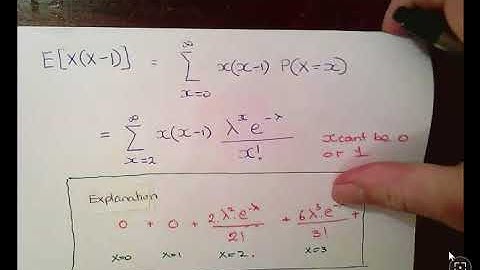 E[X(X-1)] = ∞∑x=0 x(x-1) P(X=x)
= ∞∑x=2 x(x-1) λ^x e^-λ / x!
x cant be 0
or 1
Explanation
0 + 0 + 2.λ².e^-λ / 2! + 6λ³.e^- / 3! +
x=0 x=1 x=2. x=3